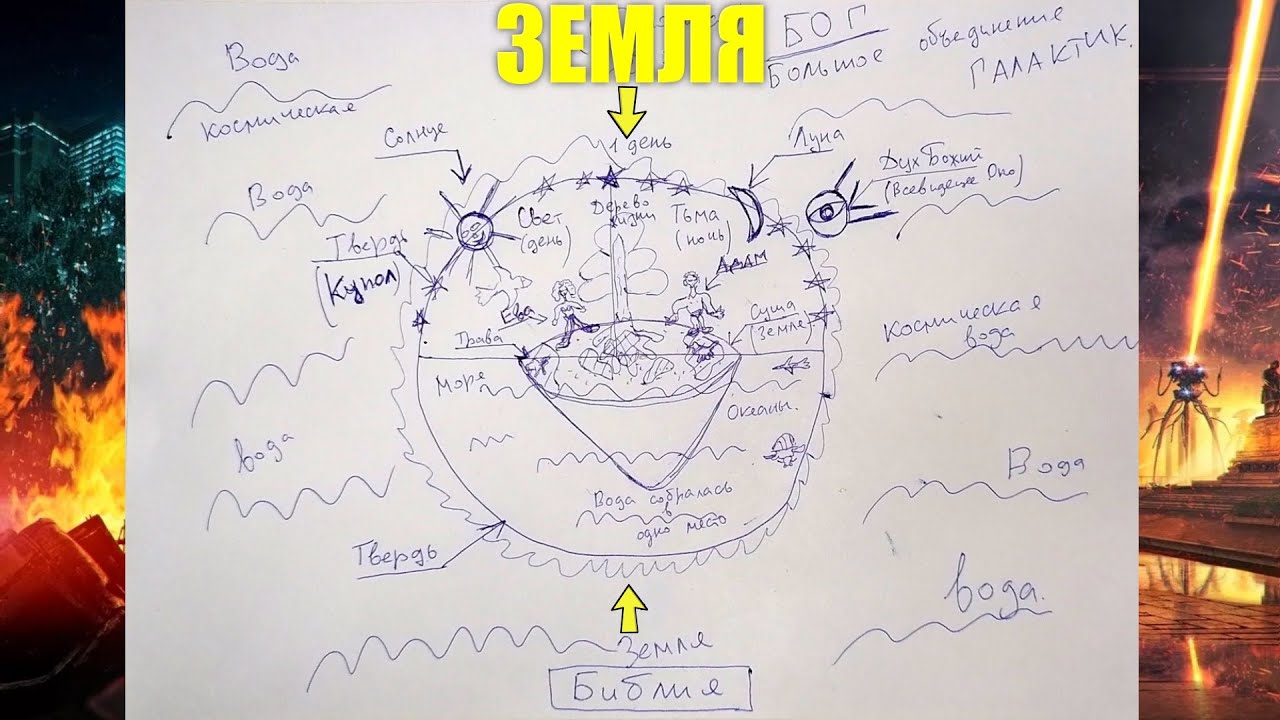 ЗЕМЛЯ
БОГ
Большое
объединение
ГАЛАКТИК.
Вода
космическая
Солнце
1 день
Луна
Дух Божий
(Всевидящее Око)
Вода
Твердь
(Купол)
Свет
(день)
Дерево
жизни
Тьма
(ночь)
Адам
Ева
Трава
Суша
(Земле)
Космическая
вода
Море
Океаны.
вода
Вода
Вода собралась
в
одно место
Твердь
вода.
Земля
Библия